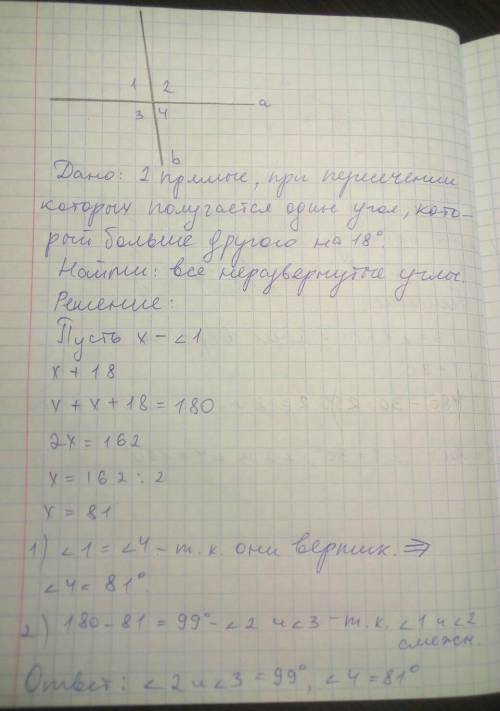 1 2
a
3 4
b
Дано: 2 прямые, при пересечении
которых получается один угол, кото-
рый больше другого на 18°.
Найти: все неразвернутые углы.
Решение:
Пусть x - ∠1
x + 18
x + x + 18 = 180
2x = 162
x = 162 : 2
x = 81
1) ∠1 = ∠4 - т.к. они вертик. ⇒
∠4 = 81°.
2) 180 - 81 = 99° - ∠2 и ∠3 - т.к. ∠1 и ∠2
смежн.
Ответ: ∠2 и ∠3 = 99°, ∠4 = 81°